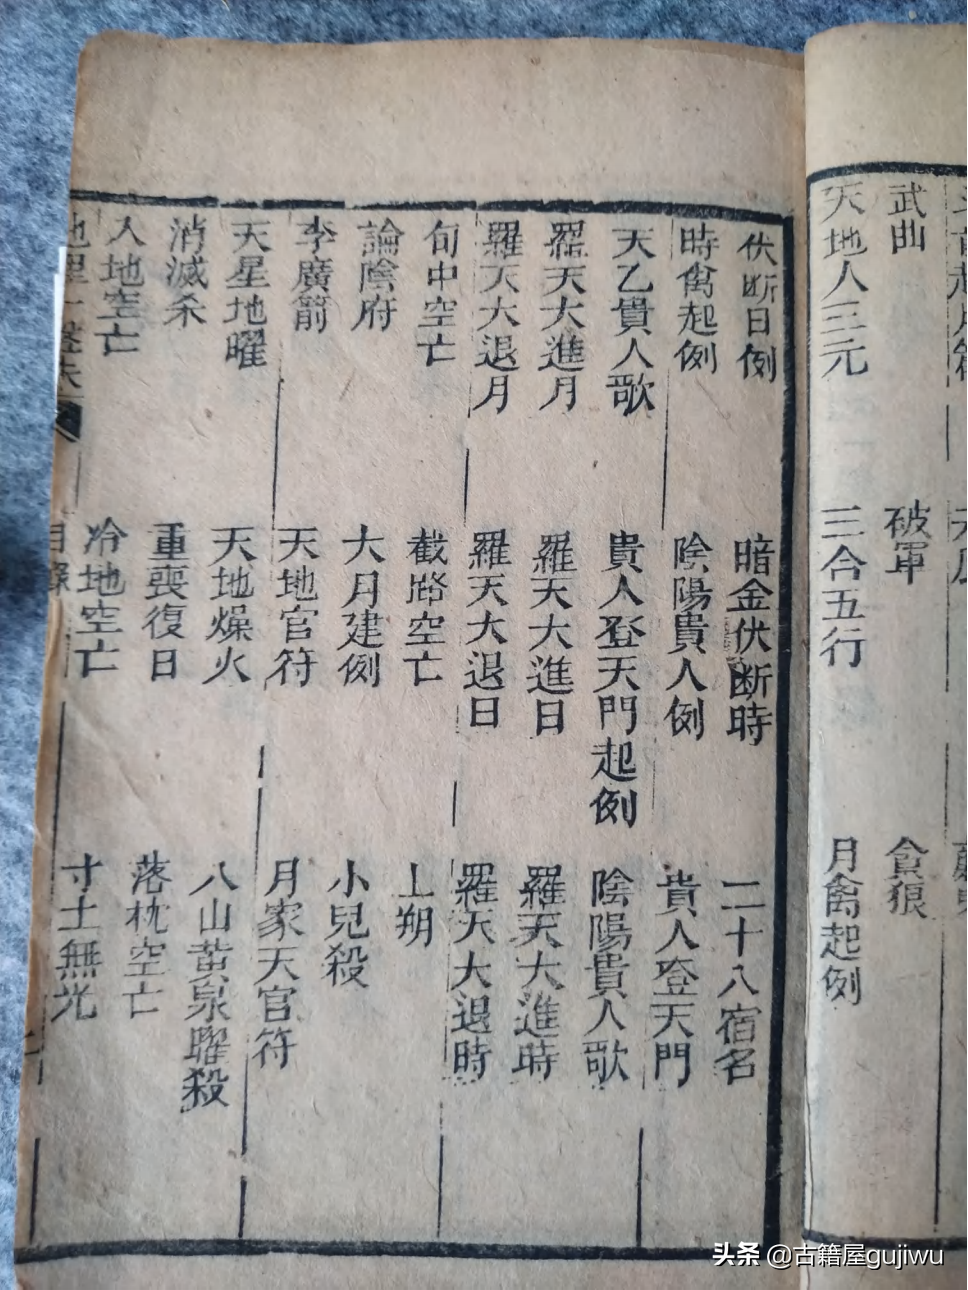 武曲 破軍 貪狼
天地人三元 三合五行 月禽起例
伏断日例 暗金伏断時 二十八宿名
時禽起例 陰陽貴人例 貴人登天門
天乙貴人歌 貴人登天門起例 陰陽貴人歌
羅天大進月 羅天大進日 羅天大進時
羅天大退月 羅天大退日 羅天大退時
旬中空亡 截路空亡 上朔
論陰府 大月建例 小兒殺
李廣箭 天地官符 月家天官符
天星地曜 天地燥火 八山黄泉曜殺
消滅杀 重喪復日 落枕空亡
人地空亡 冷地空亡 寸土無光
目錄
头条 @古籍屋gujiwu